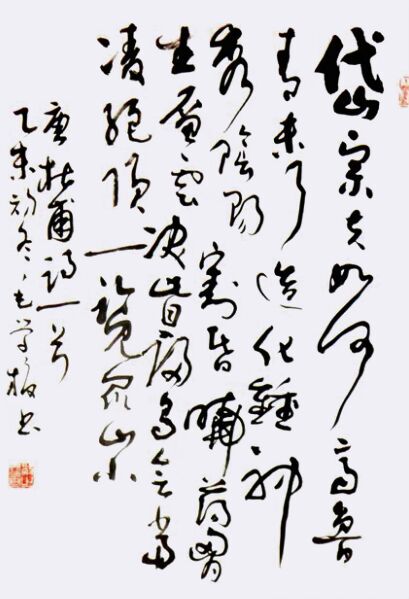 岱宗夫如何齊魯
青未了造化鍾神
秀陰陽割昏曉蕩胸
生層雲決眥歸鳥會當
凌絕頂一覽眾山小
唐杜甫詩一首
乙未初冬學書